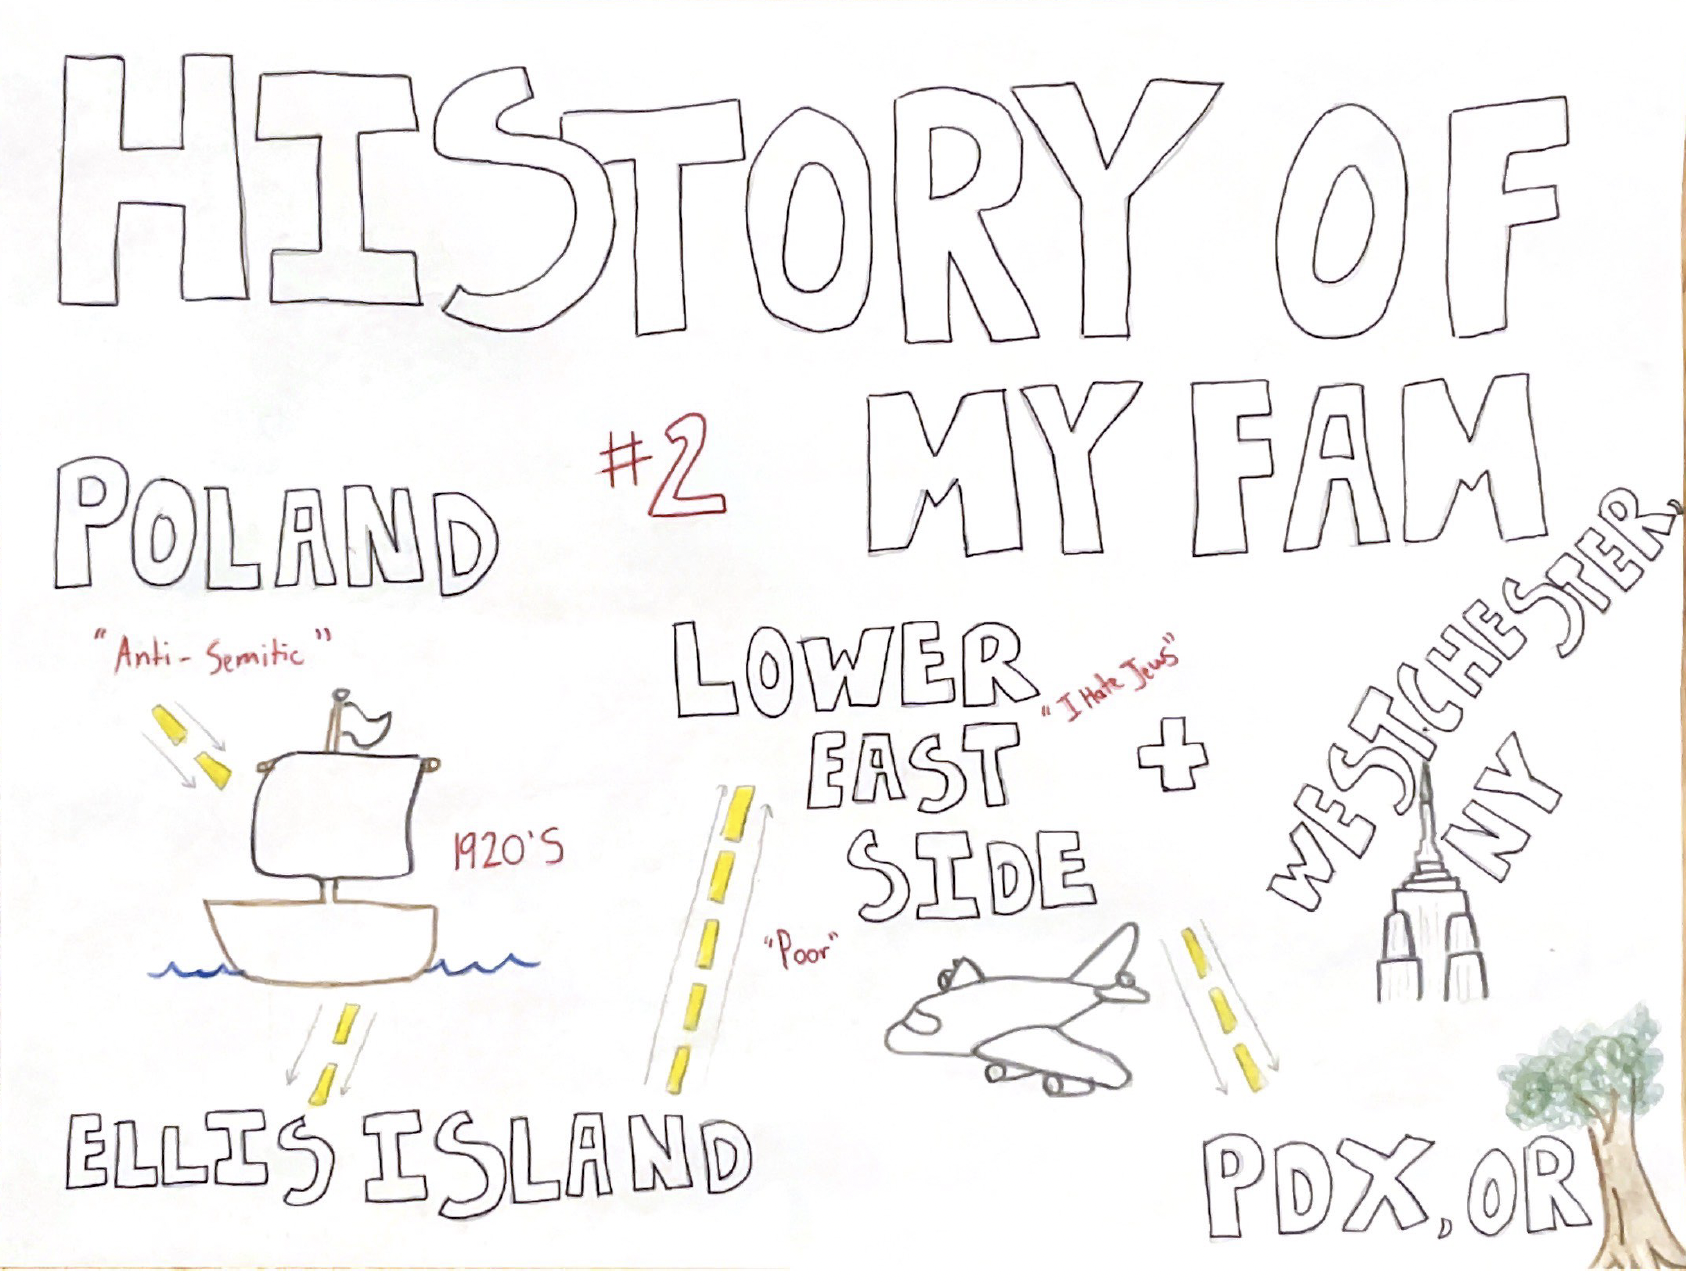 HISTORY OF
MY FAM
#2
POLAND
"Anti-Semitic"
1920'S
ELLIS ISLAND
LOWER
EAST
SIDE
"I Hate Jews"
+
WESTCHESTER,
NY
"Poor"
PDX, OR